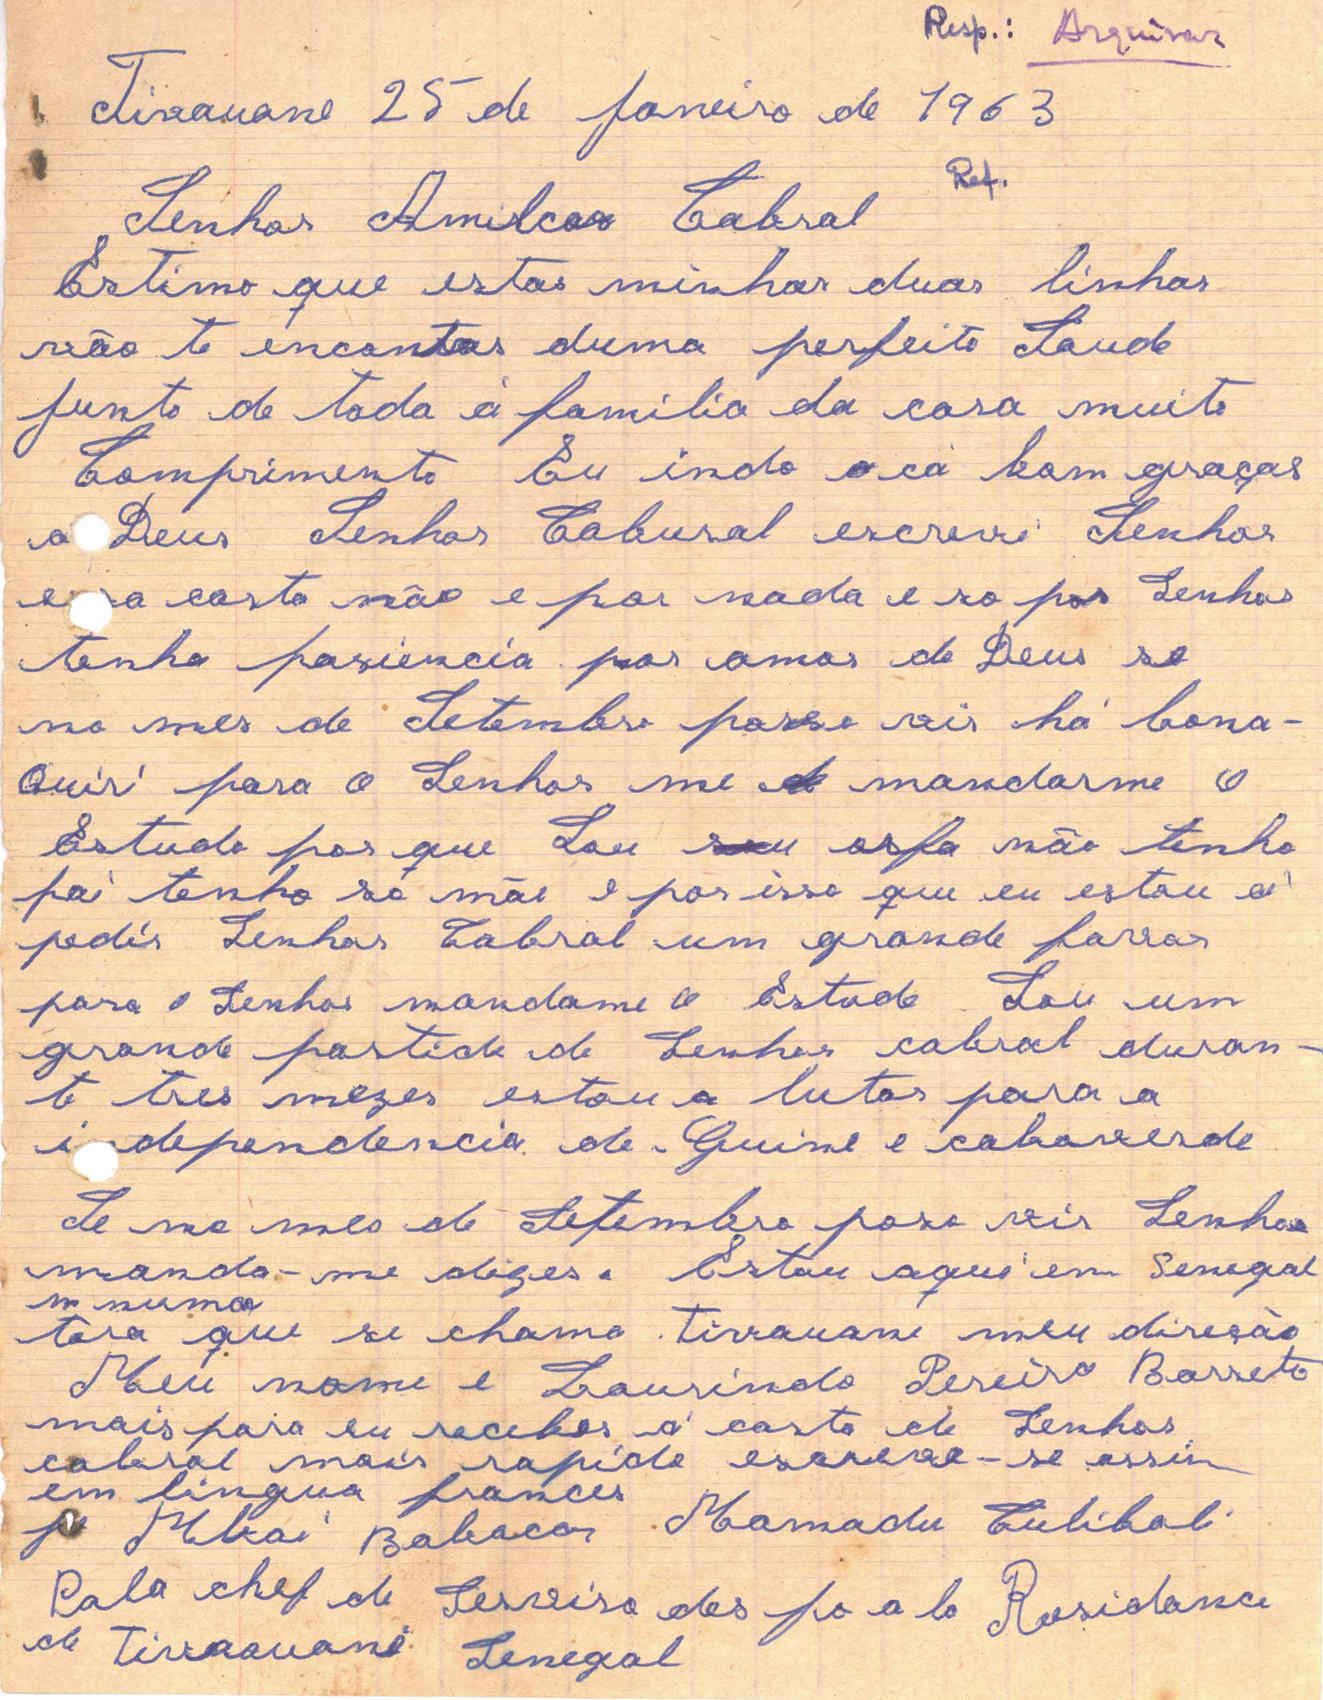 Resp.: Arquivar
Tivavane 25 de Janeiro de 1963
Ref.
Senhor Amilcar Cabral
Estimo que estas minhas duas linhas
vão te encontar duma perfeito Saude
junto de toda á familia da casa muito
Comprimento Eu indo cá bom graças
a Deus Senhor Cabural escrevi Senhor
carta não e por nada e so por Senhor
tenha pasiencia por amor de Deus se
no mes de Setembro posso vir há Cona-
Quiri para o Senhor me mandarme o
Estudo por que Sou orfa não tenho
pai tenho só mãe e por isso que eu estou a
pedir Senhor Cabral um grande favor
para o Senhor mandame o Estudo Sou um
grande partide de Senhor cabral duran-
te tres mezes estou a lutar para a
independencia de Guine e caboverde
Se no mes de Setembro poso vir Senhor
manda-me dizer. Estou aqui em Senegal
numa
tera que se chama tivavane meu direção
Meu nome e Laurindo Pereira Barreto
mais para eu receber á carta de Senhor
cabral mais rapide escreve-se assim
em lingua frances
Babacar Mamadu Culibali
chef de Serviso des Residance
de tivavane Senegal